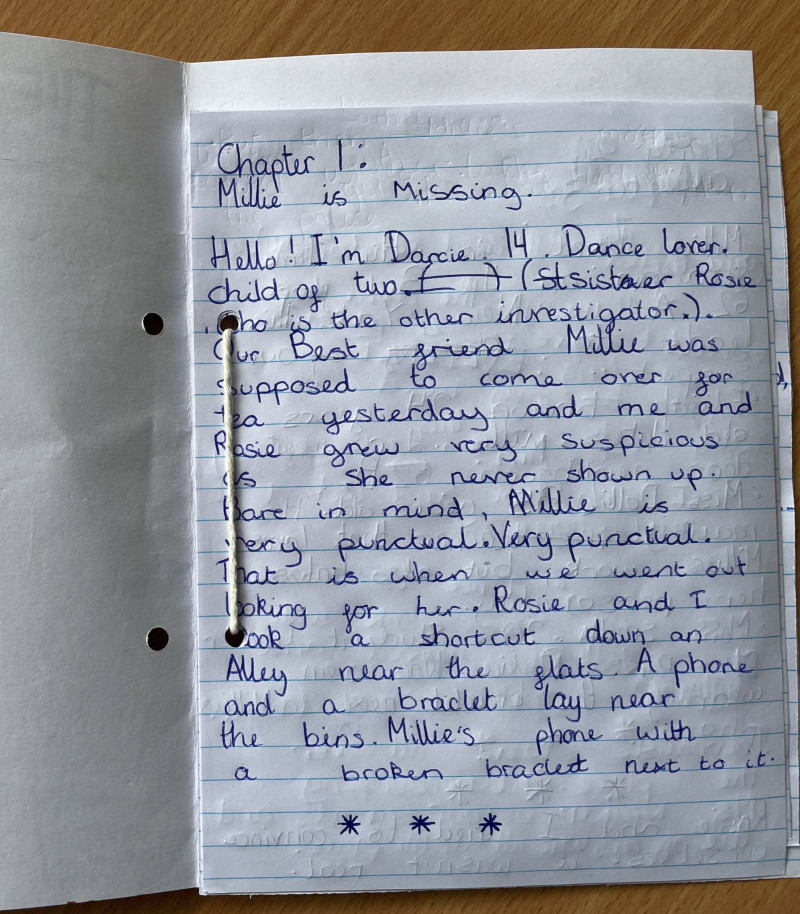 Chapter 1:
Millie is Missing.
Hello! I'm Darcie. 14. Dance lover.
child of two. (sister Rosie
who is the other investigator.).
Our Best friend Millie was
supposed to come over for
tea yesterday and me and
Rosie grew very suspicious
as she never shown up.
Bare in mind, Millie is
very punctual. Very punctual.
That is when we went out
looking for her. Rosie and I
took a shortcut down an
Alley near the flats. A phone
and a braclet lay near
the bins. Millie's phone with
a broken braclet next to it.
* * *